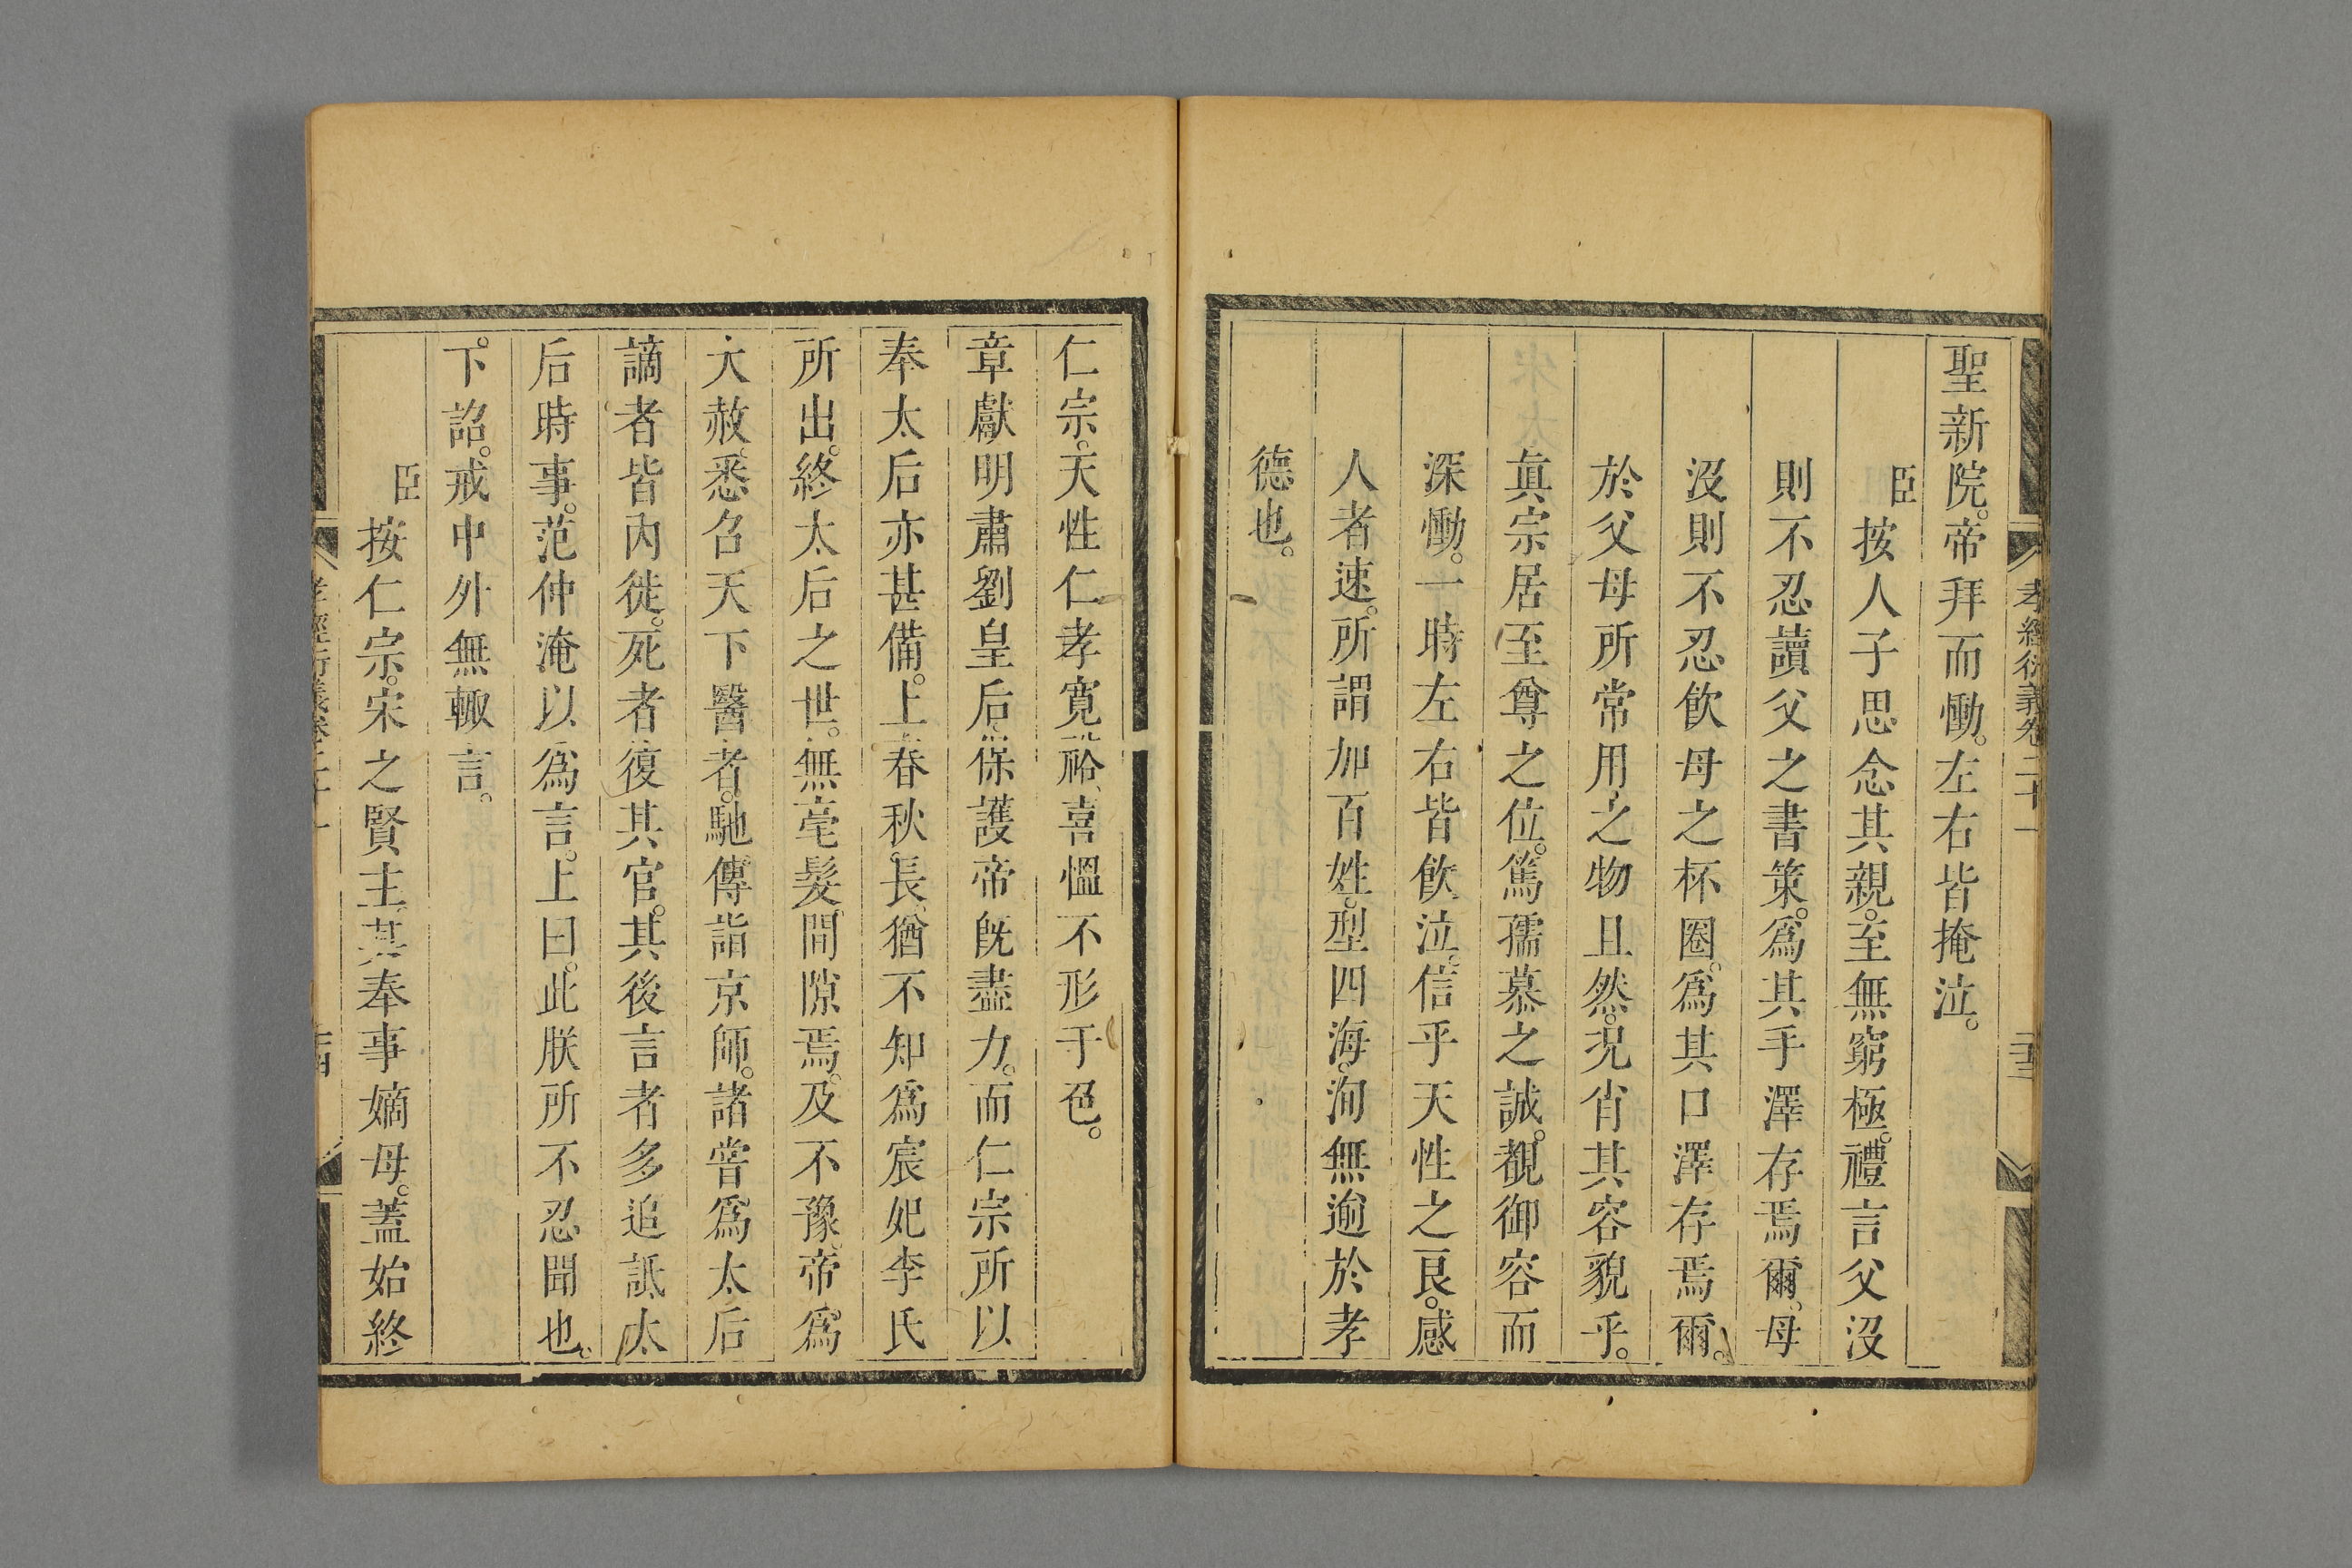 孝經衍義卷二十一
聖新院。帝拜而慟。左右皆掩泣。
臣按人子思念其親。至無窮極。禮言父沒
則不忍讀父之書策。爲其手澤存焉爾。母
沒則不忍飲母之杯圈。爲其口澤存焉爾。
於父母所常用之物且然。况肖其容貌乎。
眞宗居至尊之位。篤孺慕之誠。覩御容而
深慟。一時左右皆飲泣。信乎天性之良。感
人者速。所謂加百姓。型四海。洵無逾於孝
德也。
仁宗。天性仁孝寬裕。喜慍不形于色。
章獻明肅劉皇后保護帝旣盡力。而仁宗所以
奉太后亦甚備。上春秋長。猶不知爲宸妃李氏
所出。終太后之世。無毫髮間隙焉。及不豫。帝爲
大赦。悉召天下醫者。馳傳詣京師。諸嘗爲太后
謫者皆內徙。死者復其官。其後言者多追詆太
后時事。范仲淹以爲言。上曰。此朕所不忍聞也。
下詔。戒中外無輙言。
臣按仁宗。宋之賢主。其奉事嫡母。蓋始終